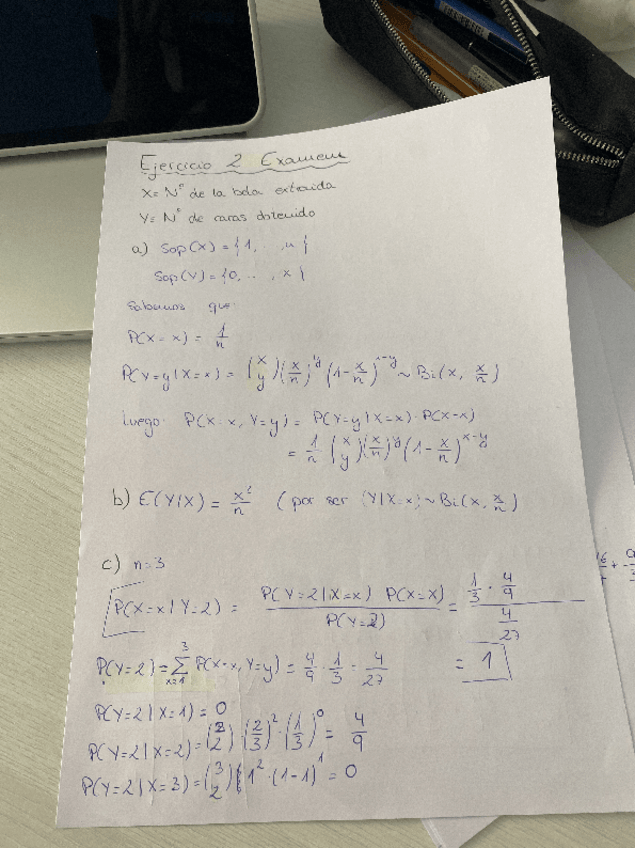 Ejercicio 2 Examen
X = Nº de la bola extraida
Y = Nº de caras obtenido
a) Sop(X) = {1, .. , n}
Sop(Y) = {0, .. , x}
Sabemos que
P(X = x) = 1/n
P(Y=y|X=x) = (x y) (x/n)^y (1 - x/n)^(x-y) ~ Bi(x, x/n)
Luego P(X=x, Y=y) = P(Y=y|X=x) · P(X=x)
= 1/n (x y) (x/n)^y (1 - x/n)^(x-y)
b) E(Y|X) = x²/n (por ser (Y|X=x) ~ Bi(x, x/n)
c) n=3
P(X=x|Y=2) = P(Y=2|X=x) P(X=x) / P(Y=2) = 1/3 · 4/9 / 4/27
P(Y=2) = Σ_{x=1}^{3} P(X=x, Y=y) = 4/9 · 1/3 = 4/27
= 1
P(Y=2|X=1) = 0
P(Y=2|X=2) = (2 2) · (2/3)² · (1/3)^0 = 4/9
P(Y=2|X=3) = (3 2) 1² · (1-1)^1 = 0